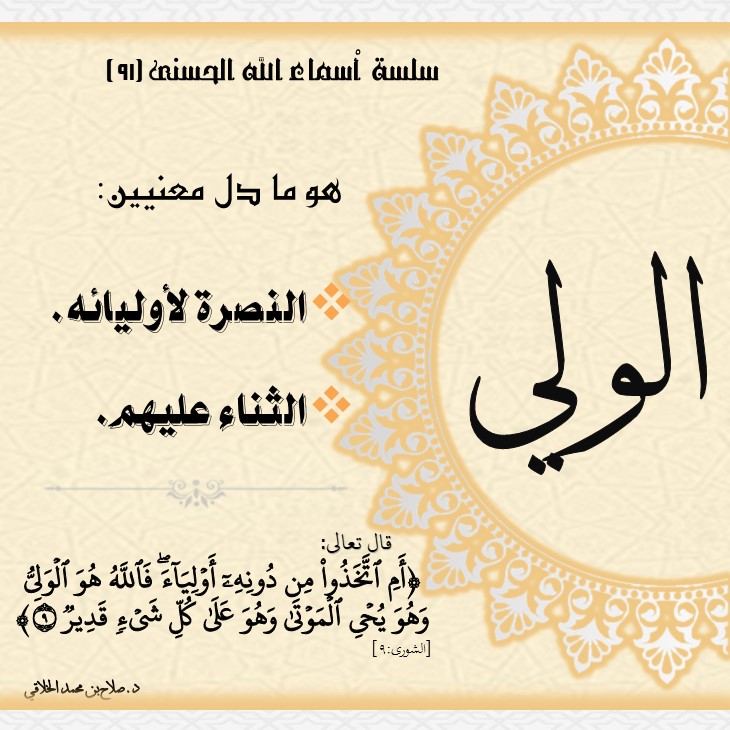 سلسة أسماء الله الحسنى (٩١)
هو ما دل معنيين:
النصرة لأوليائه.
الثناء عليهم.
الولي
قال تعالى:
﴿أَمِ ٱتَّخَذُواْ مِن دُونِهِۦٓ أَوۡلِيَآءَۖ فَٱللَّهُ هُوَ ٱلۡوَلِيُّ
وَهُوَ يُحۡيِ ٱلۡمَوۡتَىٰ وَهُوَ عَلَىٰ كُلِّ شَيۡءٖ قَدِيرٞ ٩﴾
[الشورى:٩]
د.صلاح بن محمد الخلاقي